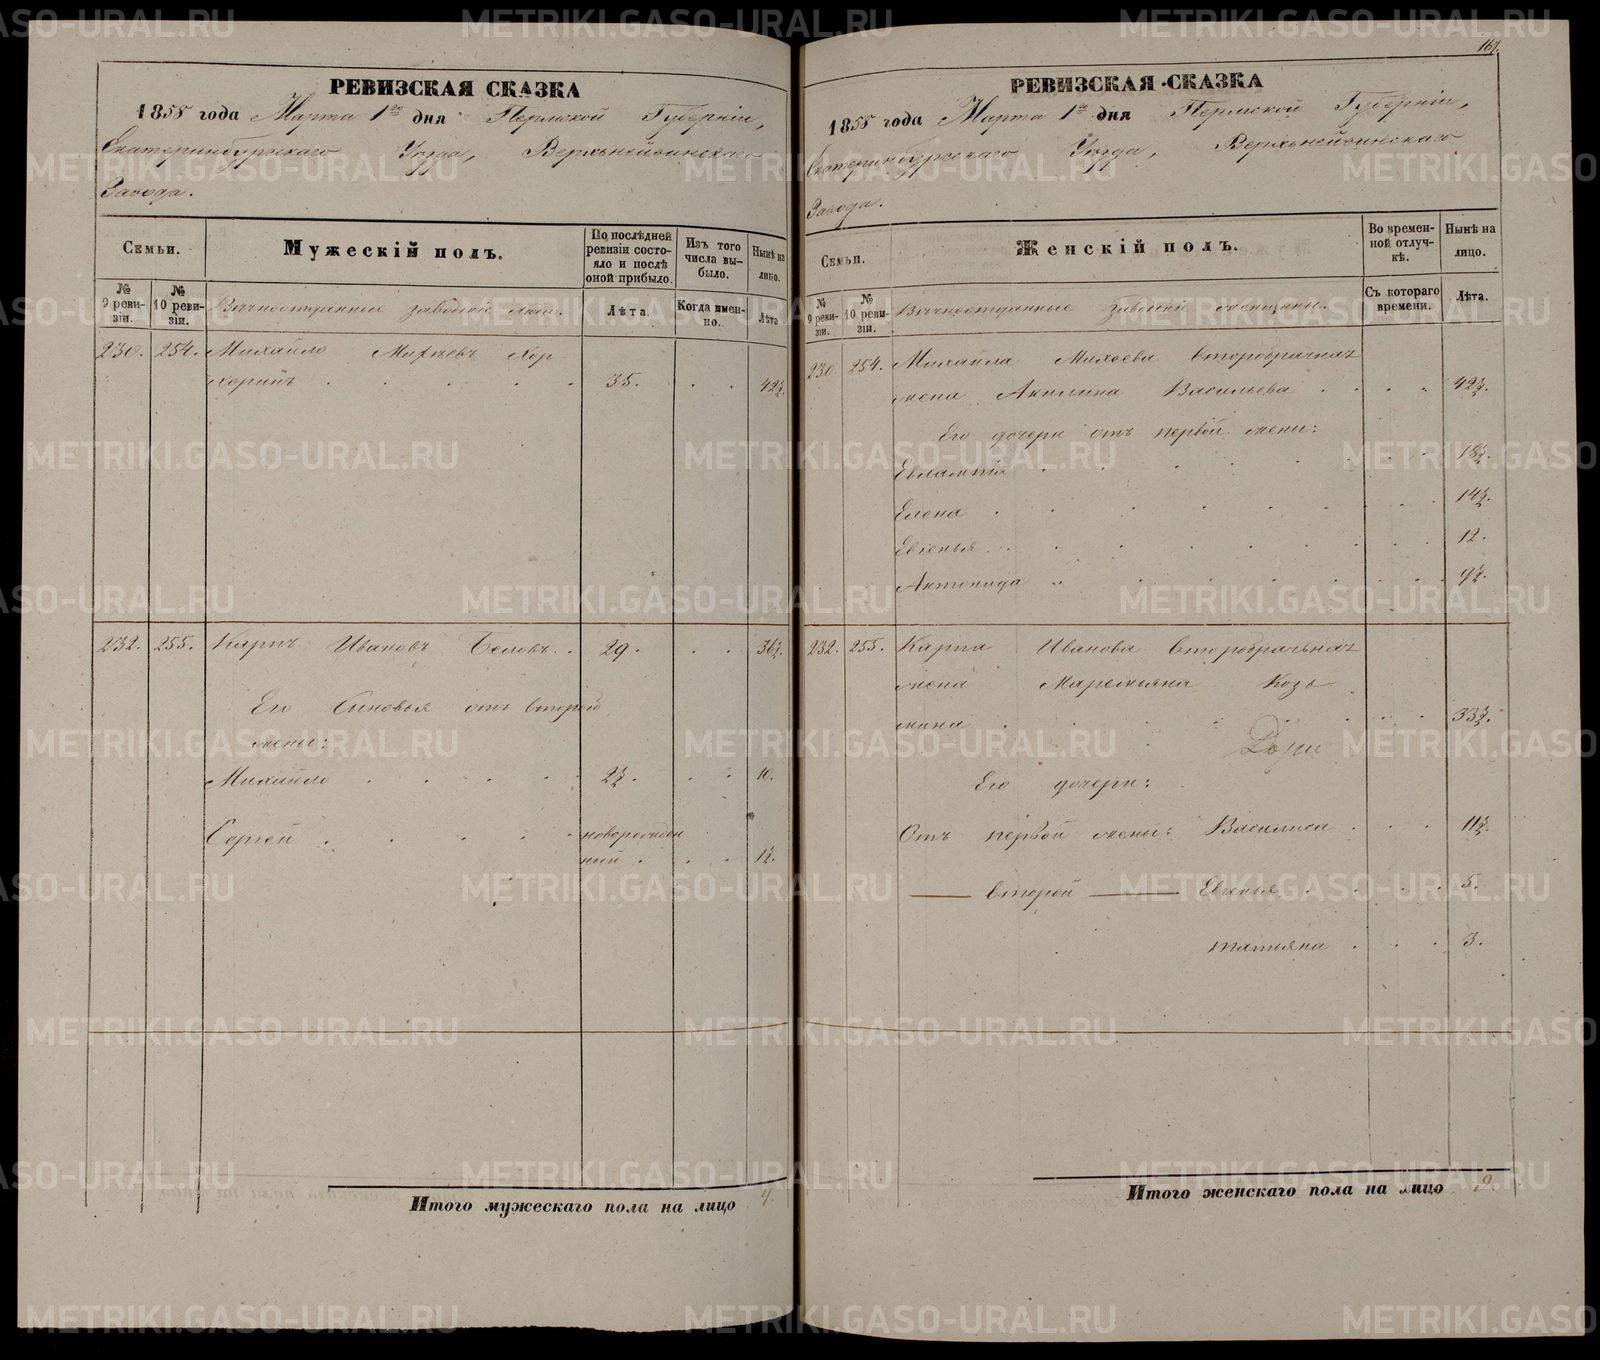 РЕВИЗСКАЯ СКАЗКА
1858 года Марта 1го дня Пермской Губерніи,
Екатеринбургскаго Уѣзда, Верхънейвинскаго
Завода.
Семьи.
Мужескій полъ.
По послѣдней ревизіи состояло и послѣ оной прибыло.
Изъ того числа выбыло.
Нынѣ на лицо.
№ 9 ревизіи.
№ 10 ревизіи.
Вѣчноотданные заводскіе люди.
Лѣта.
Когда именно.
Лѣта
230. 254. Михайло Михѣевъ Хор
35. 42½.
232. 255. Карпъ Ивановъ Беловъ. 29. 36½.
Его Сыновья отъ второй
жены:
Михайло 2½. 10.
Сергей новорожден
ный 1½.
Итого мужескаго пола на лицо 4.
167.
РЕВИЗСКАЯ СКАЗКА
1858 года Марта 1го дня Пермской Губерніи,
Екатеринбургскаго Уѣзда, Верхънейвинскаго
Завода.
Семьи.
Женскій полъ.
Во временной отлучкѣ.
Нынѣ на лицо.
№ 9 ревизіи.
№ 10 ревизіи.
Вѣчноотданные
Съ котораго времени.
Лѣта.
230 254. Михайла Михѣева второбрачная
жена Акилина Васильева 42½.
Его дочери отъ первой жены:
Евлампія 18½.
Елена 14½.
Евгенья 12.
Антонида 9½.
232. 255. Карпа Иванова второбрачная
жена Маремьяна Козь
мина 33½.
Его дочери:
Отъ первой жены: Василиса 11½.
второй Евгенья 5.
Татьяна 3.
Итого женскаго пола на лицо 9.
METRIKI.GASO-URAL.RU